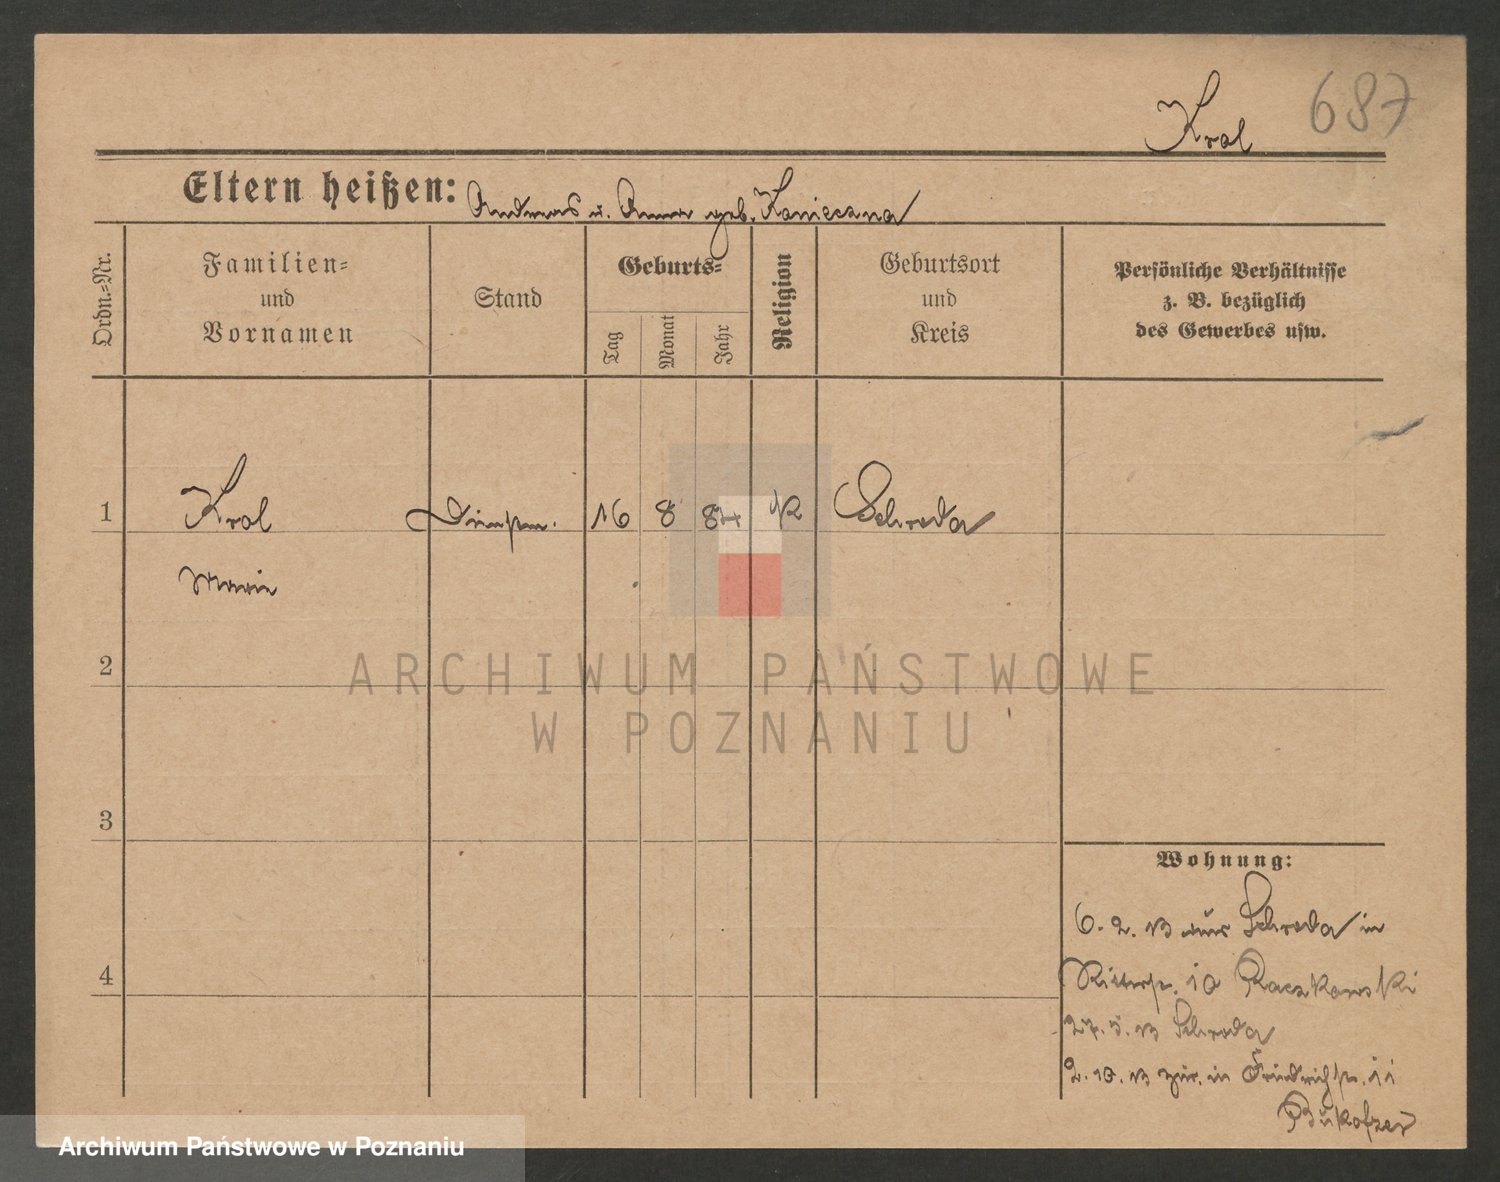 Krol 687
Eltern heißen: Andreas u. Anna geb. Konieczna
Ordn.-Nr.
Familien-
und
Vornamen
Stand
Geburts-
Tag
Monat
Jahr
Religion
Geburtsort
und
Kreis
Persönliche Verhältnisse
z. B. bezüglich
des Gewerbes usw.
1 Krol Dienstm. 16 8 84 K Schroda
Marie
2
ARCHIWUM PAŃSTWOWE
W POZNANIU
3
Wohnung:
6. 2. 13 aus Schroda in
Ritterstr. 10 Raczkowski
4
27. 5. 13 Schroda
2. 10. 13 zur. in Friedrichstr. 11
Bukofzer
Archiwum Państwowe w Poznaniu